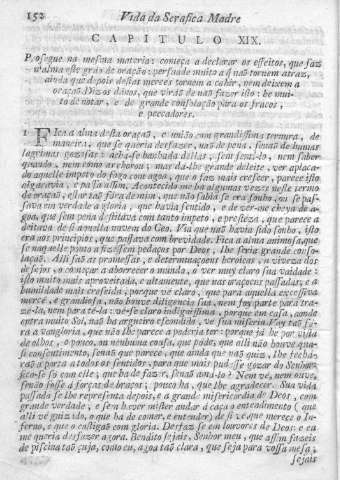 152 Vida da Serafica Madre
CAPITULO XIX.
Prosegue na mesma materia: começa a declarar os effeitos, que faz
n'alma este gráo de oração: persuade muito a q̃ naõ tornem atraz,
ainda que depois destas mercès tornem a cahir, nem deixem a
oração. Diz os danos, que viráõ de naõ fazer isto: he mui-
to de notar, e de grande consolação para os fracos,
e peccadores.
1 Fica a alma desta oração, e uniaõ com grandissima ternura, de
maneira, que se queria desfazer, naõ de pena, senaõ de humas
lagrimas gozosas: acha-se banhada dellas, sem senti-lo, nem saber
quando, nem como as chorou; mas da-lhe grande deleite, ver aplaca-
do aquelle impeto do fogo com agoa, que o faz mais crescer, parece isto
algaravia, e passa assim. Aconteceo-me ha algumas vezes neste termo
de oração, estar taõ fóra de mim, que naõ sabia se era sonho, ou se pas-
sava na verdade a gloria, que havia sentido, e de ver-me chea de a-
goa, que sem pena destilava com tanto impeto, e presteza, que parece a
deitava de si aquella nuvem do Ceo. Via que naõ havia sido sonho, isto
era aos principios, que passava com brevidade. Fica a alma animosa, que
se naquelle ponto a fizessem pedaços por Deos, lhe seria grande conso-
laçaõ. Alli saõ as promessas, e determinaçoens heroicas, a viveza dos
desejos, o começar a aborrecer o mundo, o ver muy claro sua vaidade:
isto muito mais aproveitada, e altamente, que nas oraçoens passadas, e a
humildade mais crescida; porque vè claro, que para aquella excessiva
mercè, e grandiosa, naõ houve diligencia sua, nem foy parte para tra-
ze-la, nem para tè-la: vè-se claro indignissima, porque em casa, aonde
entra muito Sol, naõ ha argueiro escondido, vè sua miseria. Vay taõ fó-
ra a vangloria, que naõ lhe parece a poderia ter: porque já he por vista
de olhos, o pouco, ou nenhuma cousa, que póde, que alli naõ houve qua-
si consentimento, senaõ que parece, que ainda que naõ quiz, lhe fechá-
raõ a porta a todos os sentidos, para que mais pudesse gozar do Senhor.
fica-se só com elle; que ha de fazer, senaõ ama-lo? Nem vè, nem ouve,
senaõ fosse á força de braços; pouco ha, que lhe agradecer. Sua vida
passada se lhe representa depois, e a grande misericordia de Deos, com
grande verdade, e sem haver mister andar á caça o entendimento (que
alli vè guizado, o que ha de comer, e entender) de si vè que merece o In-
ferno, e que o castigaõ com gloria. Desfaz se em louvores de Deos: e eu
me queria desfazer agora. Bendito sejais, Senhor meu, que assim fazeis
de piscina taõ çuja, como eu, agoa taõ clara, que seja para vossa mesa;
sejais